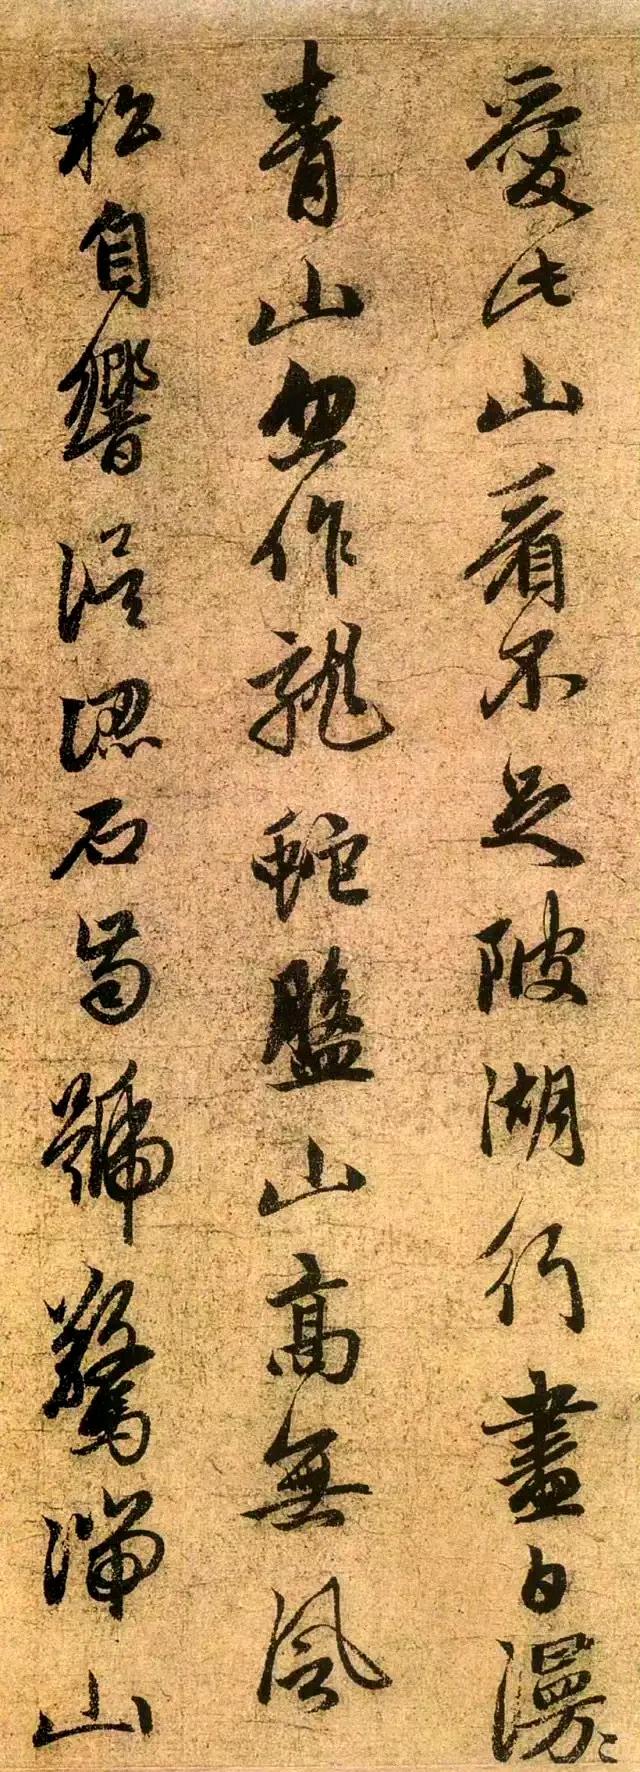 愛此山看不足陂湖行盡白漫々
青山忽作龍蛇盤山高無風
松自響誤認石齒號驚湍山